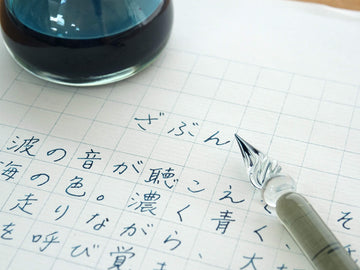 ざぶん
波の音が聴こえ そ
海の色。濃く青く、
走りながら、大
を呼び覚